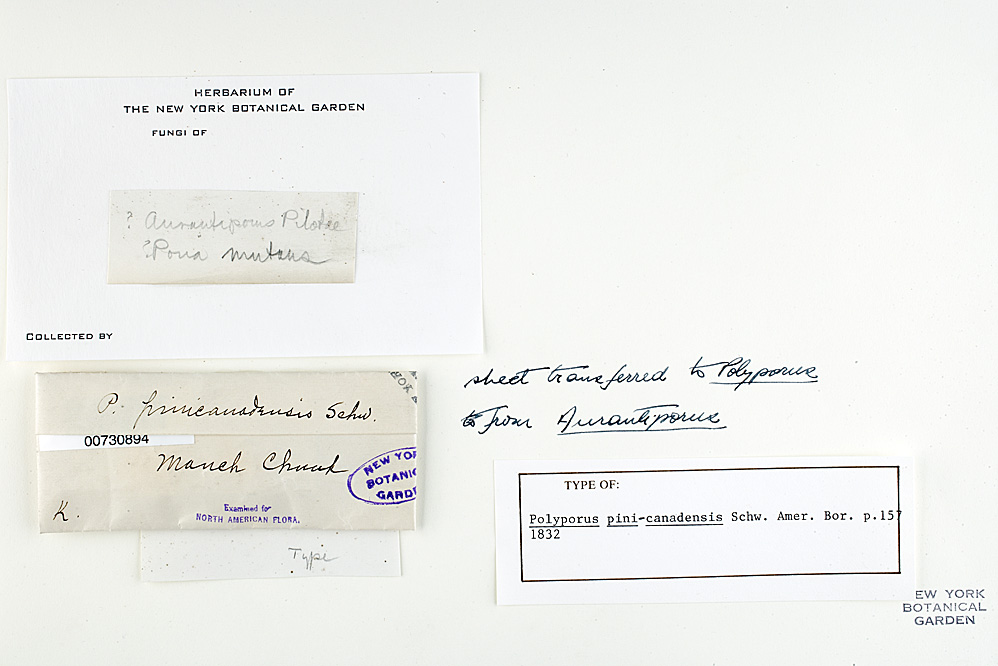 HERBARIUM OF
THE NEW YORK BOTANICAL GARDEN
FUNGI OF
? Aurantiporus Pilotae
? Poria mutans
COLLECTED BY
P. pinicanadensis Schw.
00730894
Mauch Chunk
NEW YOR
BOTANIC
GARDE
K.
Examined for
NORTH AMERICAN FLORA.
Type
sheet transferred to Polyporus
to from Aurantiporus
TYPE OF:
Polyporus pini-canadensis Schw. Amer. Bor. p.157
1832
EW YORK
BOTANICAL
GARDEN